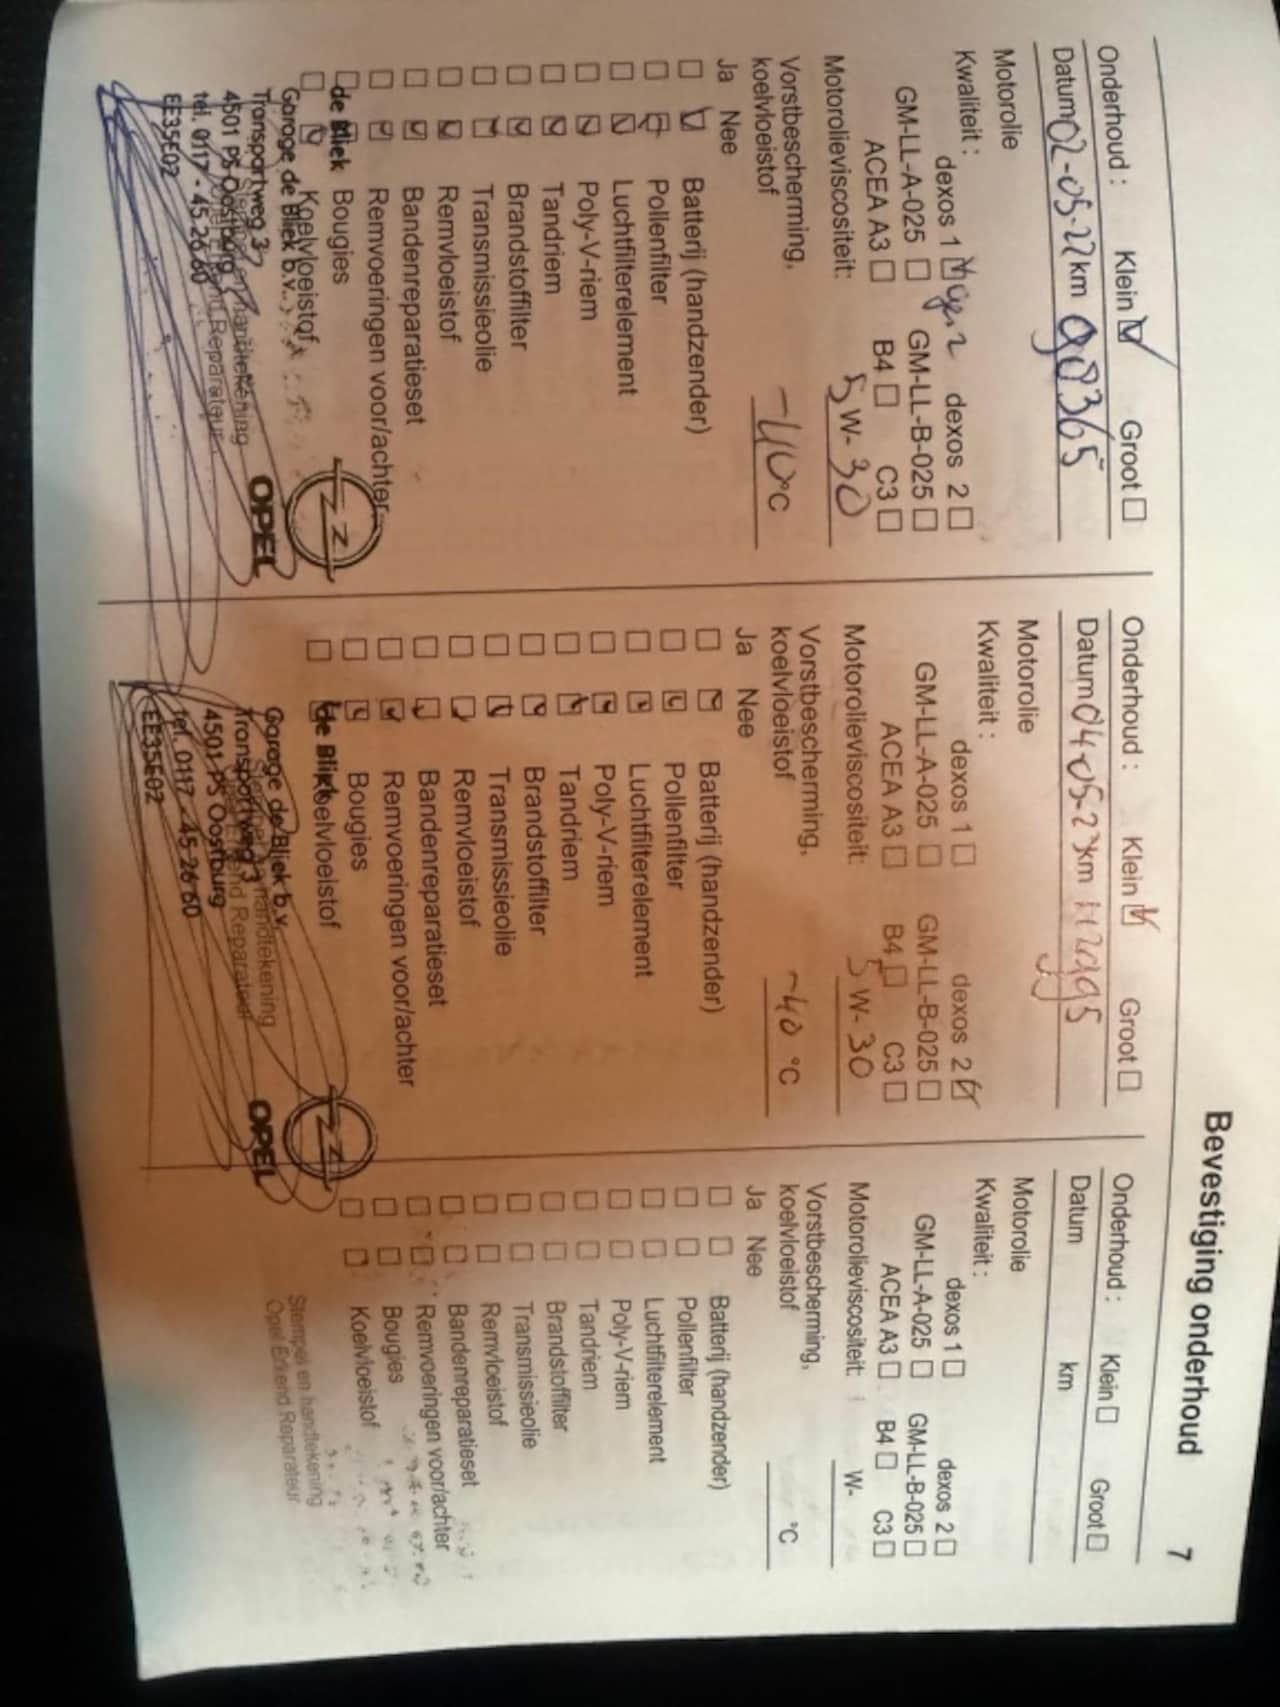 Bevestiging onderhoud 7
Onderhoud : Klein ☑ Groot ☐
Datum 02-05-22 km 98365
Motorolie
Kwaliteit : dexos 1 ☑ gen 2 dexos 2 ☐
GM-LL-A-025 ☐ GM-LL-B-025 ☐
ACEA A3 ☐ B4 ☐ C3 ☐
Motorolieviscositeit: 5 W- 30
Vorstbescherming,
koelvloeistof -40 °C
Ja Nee
☐ ☑ Batterij (handzender)
☐ ☑ Pollenfilter
☐ ☑ Luchtfilterelement
☐ ☑ Poly-V-riem
☐ ☑ Tandriem
☐ ☑ Brandstoffilter
☐ ☑ Transmissieolie
☐ ☑ Remvloeistof
☐ ☑ Bandenreparatieset
☐ ☑ Remvoeringen voor/achter
☐ ☑ Bougies
☐ ☑ Koelvloeistof
de Bliek
Garage de Bliek b.v.
Transportweg 3
4501 PS Oostburg
tel. 0117 - 45 26 60
EE35E02
OPEL
Stempel en handtekening
Opel Erkend Reparateur
Onderhoud : Klein ☑ Groot ☐
Datum 04-05-23 km
Motorolie
Kwaliteit : dexos 1 ☐ dexos 2 ☑
GM-LL-A-025 ☐ GM-LL-B-025 ☐
ACEA A3 ☐ B4 ☐ C3 ☐
Motorolieviscositeit: 5 W- 30
Vorstbescherming,
koelvloeistof -40 °C
Ja Nee
☐ ☑ Batterij (handzender)
☐ ☑ Pollenfilter
☐ ☑ Luchtfilterelement
☐ ☑ Poly-V-riem
☐ ☑ Tandriem
☐ ☑ Brandstoffilter
☐ ☑ Transmissieolie
☐ ☑ Remvloeistof
☐ ☑ Bandenreparatieset
☐ ☑ Remvoeringen voor/achter
☐ ☑ Bougies
☐ ☑ Koelvloeistof
de Bliek
Garage de Bliek b.v.
Transportweg 3
4501 PS Oostburg
tel. 0117 - 45 26 60
EE35E02
OPEL
Stempel en handtekening
Opel Erkend Reparateur
Onderhoud : Klein ☐ Groot ☐
Datum km
Motorolie
Kwaliteit : dexos 1 ☐ dexos 2 ☐
GM-LL-A-025 ☐ GM-LL-B-025 ☐
ACEA A3 ☐ B4 ☐ C3 ☐
Motorolieviscositeit: W-
Vorstbescherming,
koelvloeistof °C
Ja Nee
☐ ☐ Batterij (handzender)
☐ ☐ Pollenfilter
☐ ☐ Luchtfilterelement
☐ ☐ Poly-V-riem
☐ ☐ Tandriem
☐ ☐ Brandstoffilter
☐ ☐ Transmissieolie
☐ ☐ Remvloeistof
☐ ☐ Bandenreparatieset
☐ ☐ Remvoeringen voor/achter
☐ ☐ Bougies
☐ ☐ Koelvloeistof
Stempel en handtekening
Opel Erkend Reparateur